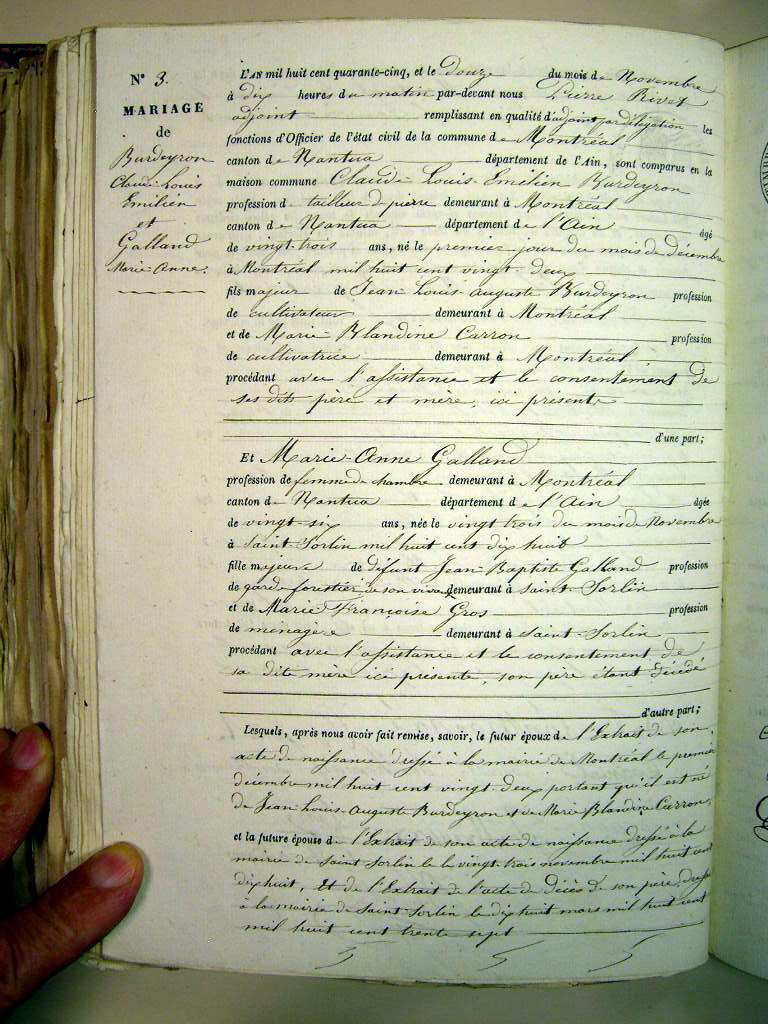 N° 3.
MARIAGE
de
Burdeyron
Claude Louis
Emilien
et
Galland
Marie-Anne.
L'AN mil huit cent quarante-cinq, et le douze du mois de Novembre
à dix heures du matin par-devant nous Pierre Rivet
adjoint remplissant en qualité d'adjoint par délégation les
fonctions d'Officier de l'état civil de la commune de Montréal
canton de Nantua département de l'Ain, sont comparus en la
maison commune Claude Louis Emilien Burdeyron
profession de tailleur de pierre demeurant à Montréal
canton de Nantua département de l'Ain âgé
de vingt trois ans, né le premier jour du mois de décembre
à Montréal mil huit cent vingt-deux
fils majeur de Jean Louis Auguste Burdeyron profession
de cultivateur demeurant à Montréal
et de Marie Blandine Carron profession
de cultivatrice demeurant à Montréal
procédant avec l'assistance et le consentement de
ses dits père et mère, ici présents
d'une part;
Et Marie-Anne Galland
profession de femme de chambre demeurant à Montréal
canton de Nantua département de l'Ain âgée
de vingt-six ans, née le vingt trois du mois de Novembre
à Saint-Sorlin mil huit cent dix huit
fille majeure de défunt Jean-Baptiste Galland profession
de garde-forestier de son vivant demeurant à Saint-Sorlin
et de Marie Françoise Gros profession
de menagère demeurant à Saint-Sorlin
procédant avec l'assistance et le consentement de
sa dite mère ici presente, son père étant décédé
d'autre part;
Lesquels, après nous avoir fait remise, savoir, le futur époux de l'Extrait de son
acte de naissance dressé à la mairie de Montréal le premier
décembre mil huit cent vingt deux portant qu'il est né
de Jean Louis Auguste Burdeyron et de Marie Blandine Carron,
et la future épouse de l'Extrait de son acte de naissance dressé à la
mairie de Saint Sorlin le le vingt trois novembre mil huit cent
dix huit, Et de l'Extrait de l'acte de décès de son père, dressé
à la mairie de Saint-Sorlin le dix huit mars mil huit cent
mil huit cent trente sept